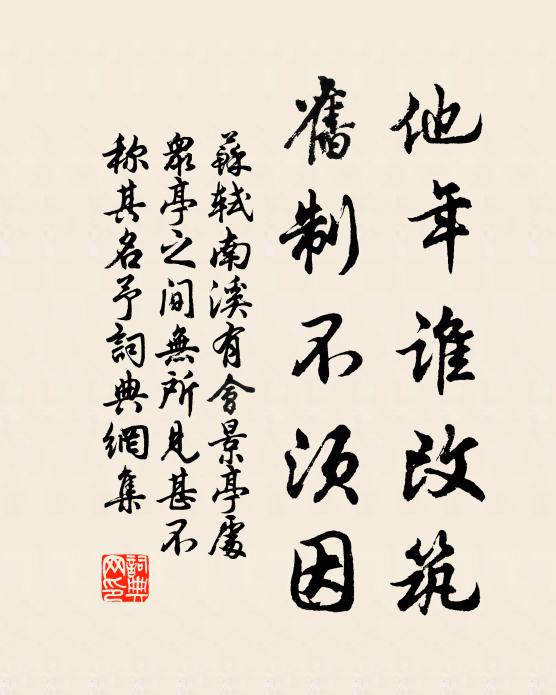 他年谁改筑
舊制不须因
蘇軾南溪有會景亭處
眾亭之间無所見甚不
称其名予詞典網集
詞典网印